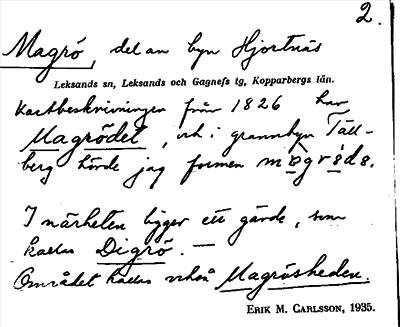 2.
Magrö, del av byn Hjortnäs
Leksands sn, Leksands och Gagnefs tg, Kopparbergs län.
Kartbeskrivningen från 1826 har
Magrödet, och i grannbyn Täll-
berg hörde jag formen
I närheten ligger ett gärde, som
kallas Digrö. —
Området kallas också Magrösheden.
ERIK M. CARLSSON, 1935.